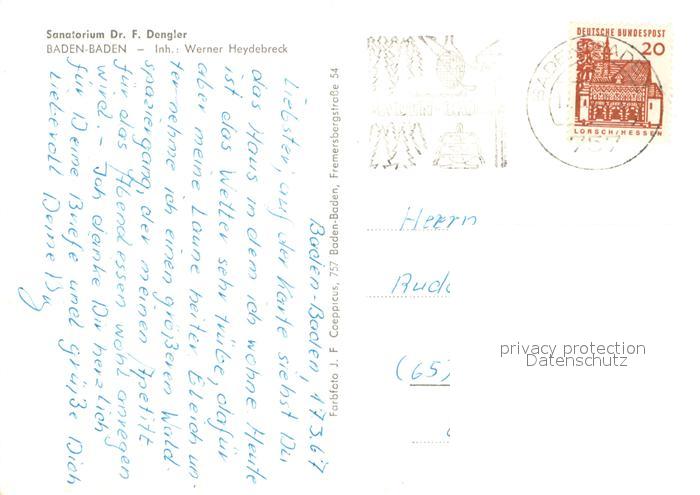 Sanatorium Dr. F. Dengler
BADEN-BADEN – Inh.: Werner Heydebreck
Baden-Baden, 17.3.67
Liebster, auf der Karte siehst Du
das Haus in dem ich wohne. Heute
ist das Wetter sehr trübe, dafür
aber meine Laune heiter. Gleich un-
ternehme ich einen größeren Wald-
spaziergang, der meinen Appetit
für das Abendessen wohl anregen
wird. – Ich danke Dir herzlich
für Deine Briefe und grüße Dich
liebevoll Deine
Farbfoto J. F. Coeppicus, 757 Baden-Baden, Fremersbergstraße 54
DEUTSCHE BUNDESPOST
20
LORSCH/HESSEN
BADEN-BADEN
757
Herrn
Rud
(65)
privacy protection
Datenschutz